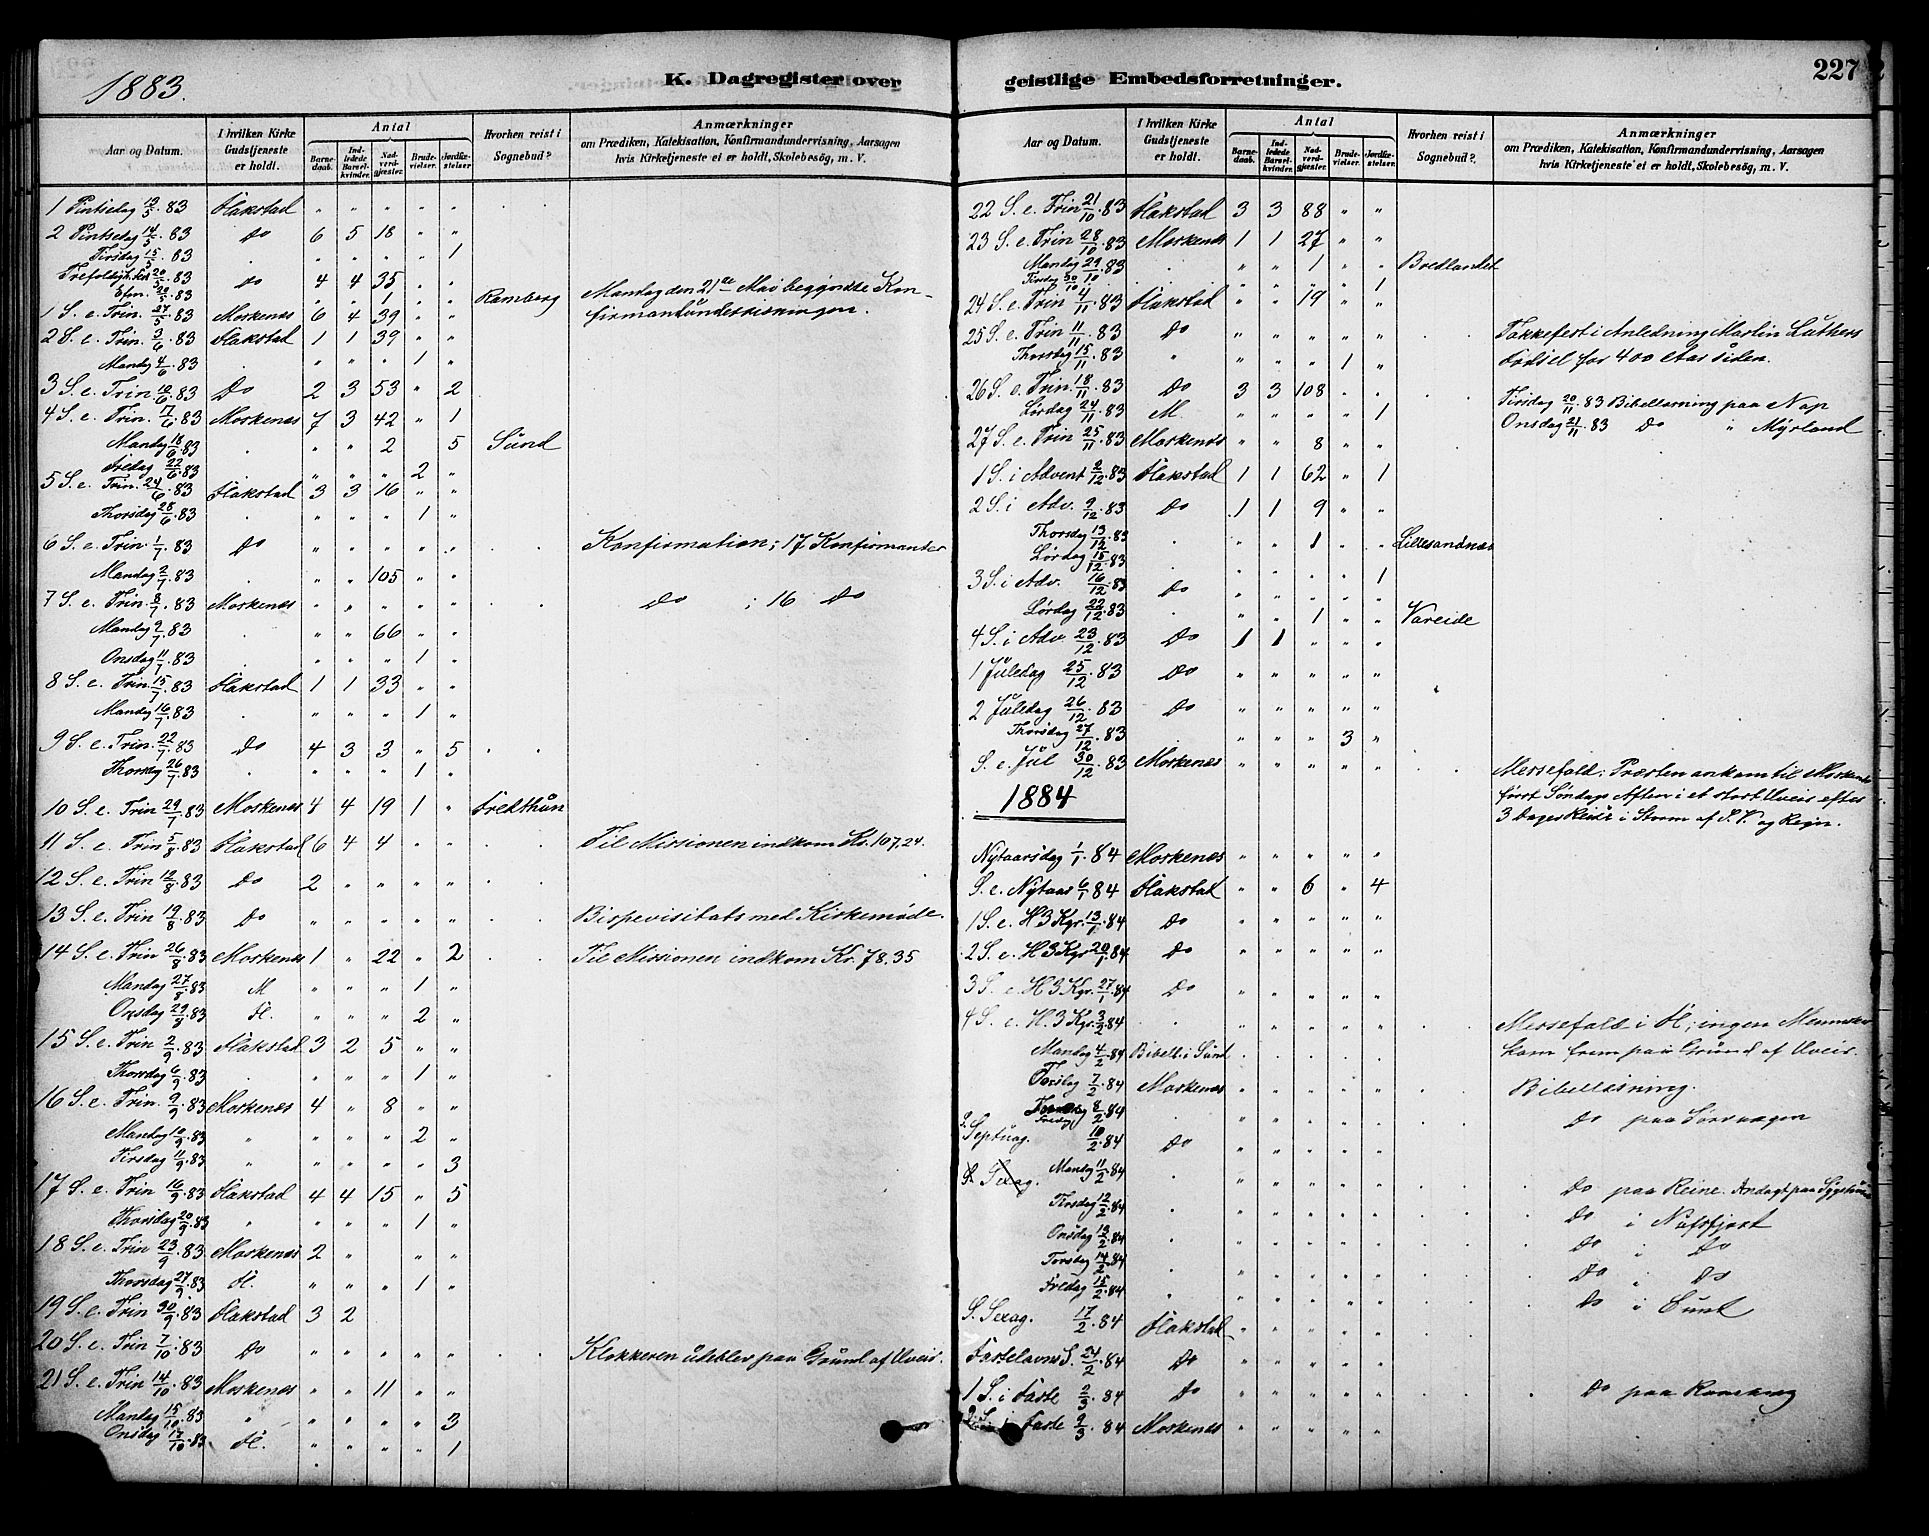 K. Dagregister over geistlige Embedsforretninger.
227
1883.
Aar og Datum.
I hvilken Kirke Gudstjeneste er holdt.
Antal
Barnedaab.
Indledede Barselkvinder.
Nadverdgjæster.
Brudevielser.
Jordfæstelser.
Hvorhen reist i Sognebud?
Anmærkninger
om Prædiken, Katekisation, Konfirmandundervisning, Aarsagen
hvis Kirketjeneste ei er holdt, Skolebesög, m. V.
1 Pintsedag 13/5 83 Flakstad " " " " "
2 Pintsedag 14/5 83 Do 6 5 18 " "
Tirsdag 15/5 83 . " " " " 1
Trefoldigh. Fest 20/5 83 Do 4 4 35 " "
Eftm. 20/5 83 " " 1 " " Ramberg Mandag den 21de Mai begyndte Kon-
1 S. e. Trin. 27/5 83 Moskenes 6 4 39 " " firmantundervisningen.
2 S. e. Trin. 3/6 83 Flakstad 1 1 39 " "
Mandg 4/6 83 . " " " 1 "
3 S. e. Trin. 10/6 83 Do 2 3 53 " 2
4 S. e. Trin. 17/6 83 Moskenes 7 3 42 " 1
Mandag 18/6 83 . " " 2 5 Sund
Fredag 22/6 83 . " " " 2 "
5 S. e. Trin. 24/6 83 Flakstad 3 3 16 " "
Thorsdag 28/6 83 . " " " 1 "
6 S. e. Trin. 1/7 83 Do " " " " " Konfirmation; 17 Konfirmanter
Mandag 2/7 83 . " " 105 " "
7 S. e. Trin. 8/7 83 Moskenes " " " " " Do ; 16 Do
Mandag 9/7 83 . " " 66 " "
Onsdag 11/7 83 . " " " 1 "
8 S. e. Trin. 15/7 83 Flakstad 1 1 33 " "
Mandag 16/7 83 . " " " 1 "
9 S. e. Trin. 22/7 83 Do 4 3 3 " 5
Thorsdg 26/7 83 . " " " 1 "
10 S. e. Trin 29/7 83 Moskenes 4 4 19 1 " Fredthun
11 S. e. Trin 5/8 83 Flakstad 6 4 4 " " Til Missionen indkom Kr. 107,24.
12 S. e. Trin 12/8 83 Do 2 " " " "
13 S. e. Trin 19/8 83 Do " " " " " Bispevisitats med Kirkemöde.
14 S. e. Trin 26/8 83 Moskenes 1 " 22 " 2 Til Missionen indkom Kr. 78.35
Mandag 27/8 83 M " " " 1 "
Onsdag 29/8 83 Fl. " " " 2 "
15 S. e. Trin 2/9 83 Flakstad 3 2 5 " "
Thorsdag 6/9 83 . " " " 1 "
16 S. e. Trin. 9/9 83 Moskenes 4 " 8 " "
Mandag 10/9 83 " " " " 2 "
Tirsdag 11/9 83 " " " " " 3
17 S. e. Trin 16/9 83 Flakstad 4 4 15 " 5
Thorsdag 20/9 83 " " " " 1 "
18 S. e. Trin 23/9 83 Moskenes 2 " " "
Thorsdag 27/9 83 Fl. " " " 1 "
19 S. e. Trin 30/9 83 Flakstad 3 2
20 S. e. Trin 7/10 83 Do " " " " " Klokkeren udeblev paa Grund af Uveir.
21 S. e. Trin 14/10 83 Moskenes " " 11 " "
Mandag 15/10 83 " " " " " 3
Onsdag 17/10 83 Fl. " " " " 1
Aar og Datum.
I hvilken Kirke Gudstjeneste er holdt.
Antal
Barnedaab.
Indledede Barselkvinder.
Nadverdgjæster.
Brudevielser.
Jordfæstelser.
Hvorhen reist i Sognebud?
Anmærkninger
om Prædiken, Katekisation, Konfirmandundervisning, Aarsagen
hvis Kirketjeneste ei er holdt, Skolebesög, m. V.
22 S. e. Trin 21/10 83 Flakstad 3 3 88 " "
23 S. e. Trin 28/10 83 Moskenes 1 1 27 " "
Mandag 29/10 83 . " " 1 " " Bredlandet
Tirsdag 30/10 " " " " 1
24 S. e. Trin 4/11 83 Flakstad " " 19 " "
25 S. e. Trin 11/11 83 Do " " " " " Takkefest i Anledning Martin Luthers
Thorsdag 15/11 83 " " " " 1 " Födsel for 400 Aar siden.
26 S. e. Trin. 18/11 83 Do 3 3 108 " " Tirsdag 20/11 83 Bibellæsning paa Nap
Lørdag 24/11 83 M. " " " " 1 Onsdag 21/11 83 Do " Myrland
27 S. e. Trin 25/11 83 Moskenes " " 8 " "
1 S. i Advent 2/12 83 Flakstad 1 1 62 " 1
2 S. i Adv. 9/12 83 Do 1 1 9 " "
Thorsdag 13/12 83 . " " 1 " " Lillesandnes
Lørdag 15/12 83 . " " " " 1
3 S. i Adv. 16/12 83 Do " " " " "
Lørdag 22/12 83 . " " 1 " " Vareide
4 S. i Adv. 23/12 83 Do 1 1 " " "
1 Juledag 25/12 83 Do " " " " "
2 Juledag 26/12 83 Do " " " " "
Thorsdag 27/12 83 " " " 3 "
S. e. Jul 30/12 83 Moskenes " " " " " Messefald: Præsten ankom til Moskenes
1884 först Söndags Aften i et stort Uveir efter
3 Dages Reise i Storm af S. V. og Regn.
Nytaarsdag 1/1 84 Moskenes " " " " "
S. e. Nytaar 6/1 84 Flakstad " " 6 " 4
1 S. e. H 3 Kgr. 13/1 84 Do " " " " "
2 S. e. H 3 Kgr 20/1 84 Do " " " " "
3 S. e. H 3 Kgr. 27/1 84 Do " " " " "
4 S. e. H. 3 Kgr. 3/2 84 . " " " " " Messefald i Fl; ingen Mennesker
Mandag 4/2 84 Bibell. i Sund . . . . . kom frem paa Grund af Uveir.
7/2 84 Moskenes " " " " " Bibellæsning.
Fredag 8/2 84 " " " " " Do paa Sörvaagen
S. Septuag. 10/2 84 Do " " " " "
Sexag. Mandg 11/2 84 . " " " " " Do paa Reine. Andagt paa
Tirsdag 12/2 84 . " " " " " Do i Nufsfjort
Onsdag 13/2 84 . " " " " " Do i Do
Torsdag 14/2 84 . " " " " " Do " Do
Fredag 15/2 84 " " " " " " Do i Sund
S. Sexag. 17/2 84 Flakstad " " " " "
Fastelavns S. 24/2 84 Do " " " " "
1 S. i Faste 2/3 84 Do " " " " " Do paa Ramberg
2 S. i Faste 9/3 84 Moskenes " " " " "